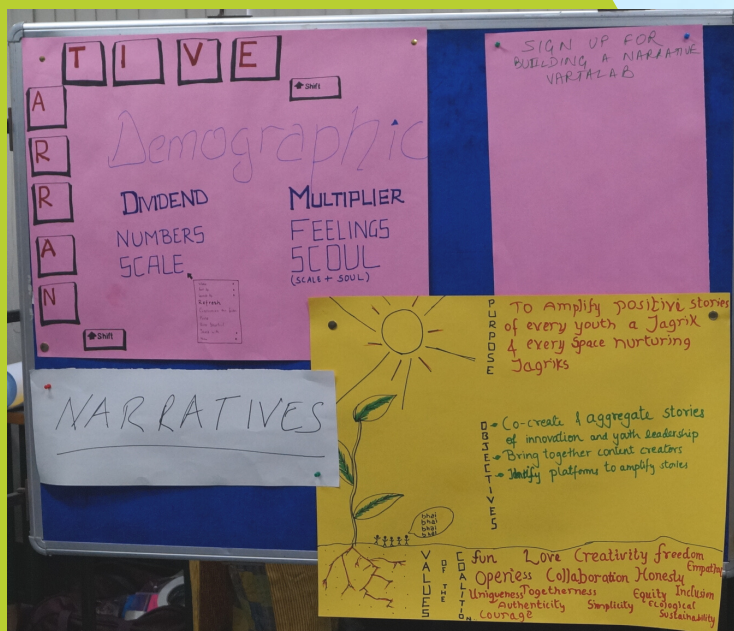 TIVE
ARRAN
Shift
Demographic
DIVIDEND
NUMBERS
SCALE
MULTIPLIER
FEELINGS
SCOUL
(SCALE + SOUL)
Refresh
Shift
SIGN UP FOR
BUILDING A NARRATIVE
VARTALAB
NARRATIVES
PURPOSE
To Amplify positive stories
of every youth a Jagrik
& every space nurturing
Jagriks
OBJECTIVES
Co-create & aggregate stories
of innovation and youth leadership
Bring together content creators
Identify platforms to amplify stories
bhai
bhai
bhai
bhai
VALUES
OF THE
COALITION
fun Love Creativity freedom
Empathy
Openess Collaboration Honesty
Uniqueness Togetherness Equity Inclusion
Authenticity Simplicity Ecological
Sustainability
Courage